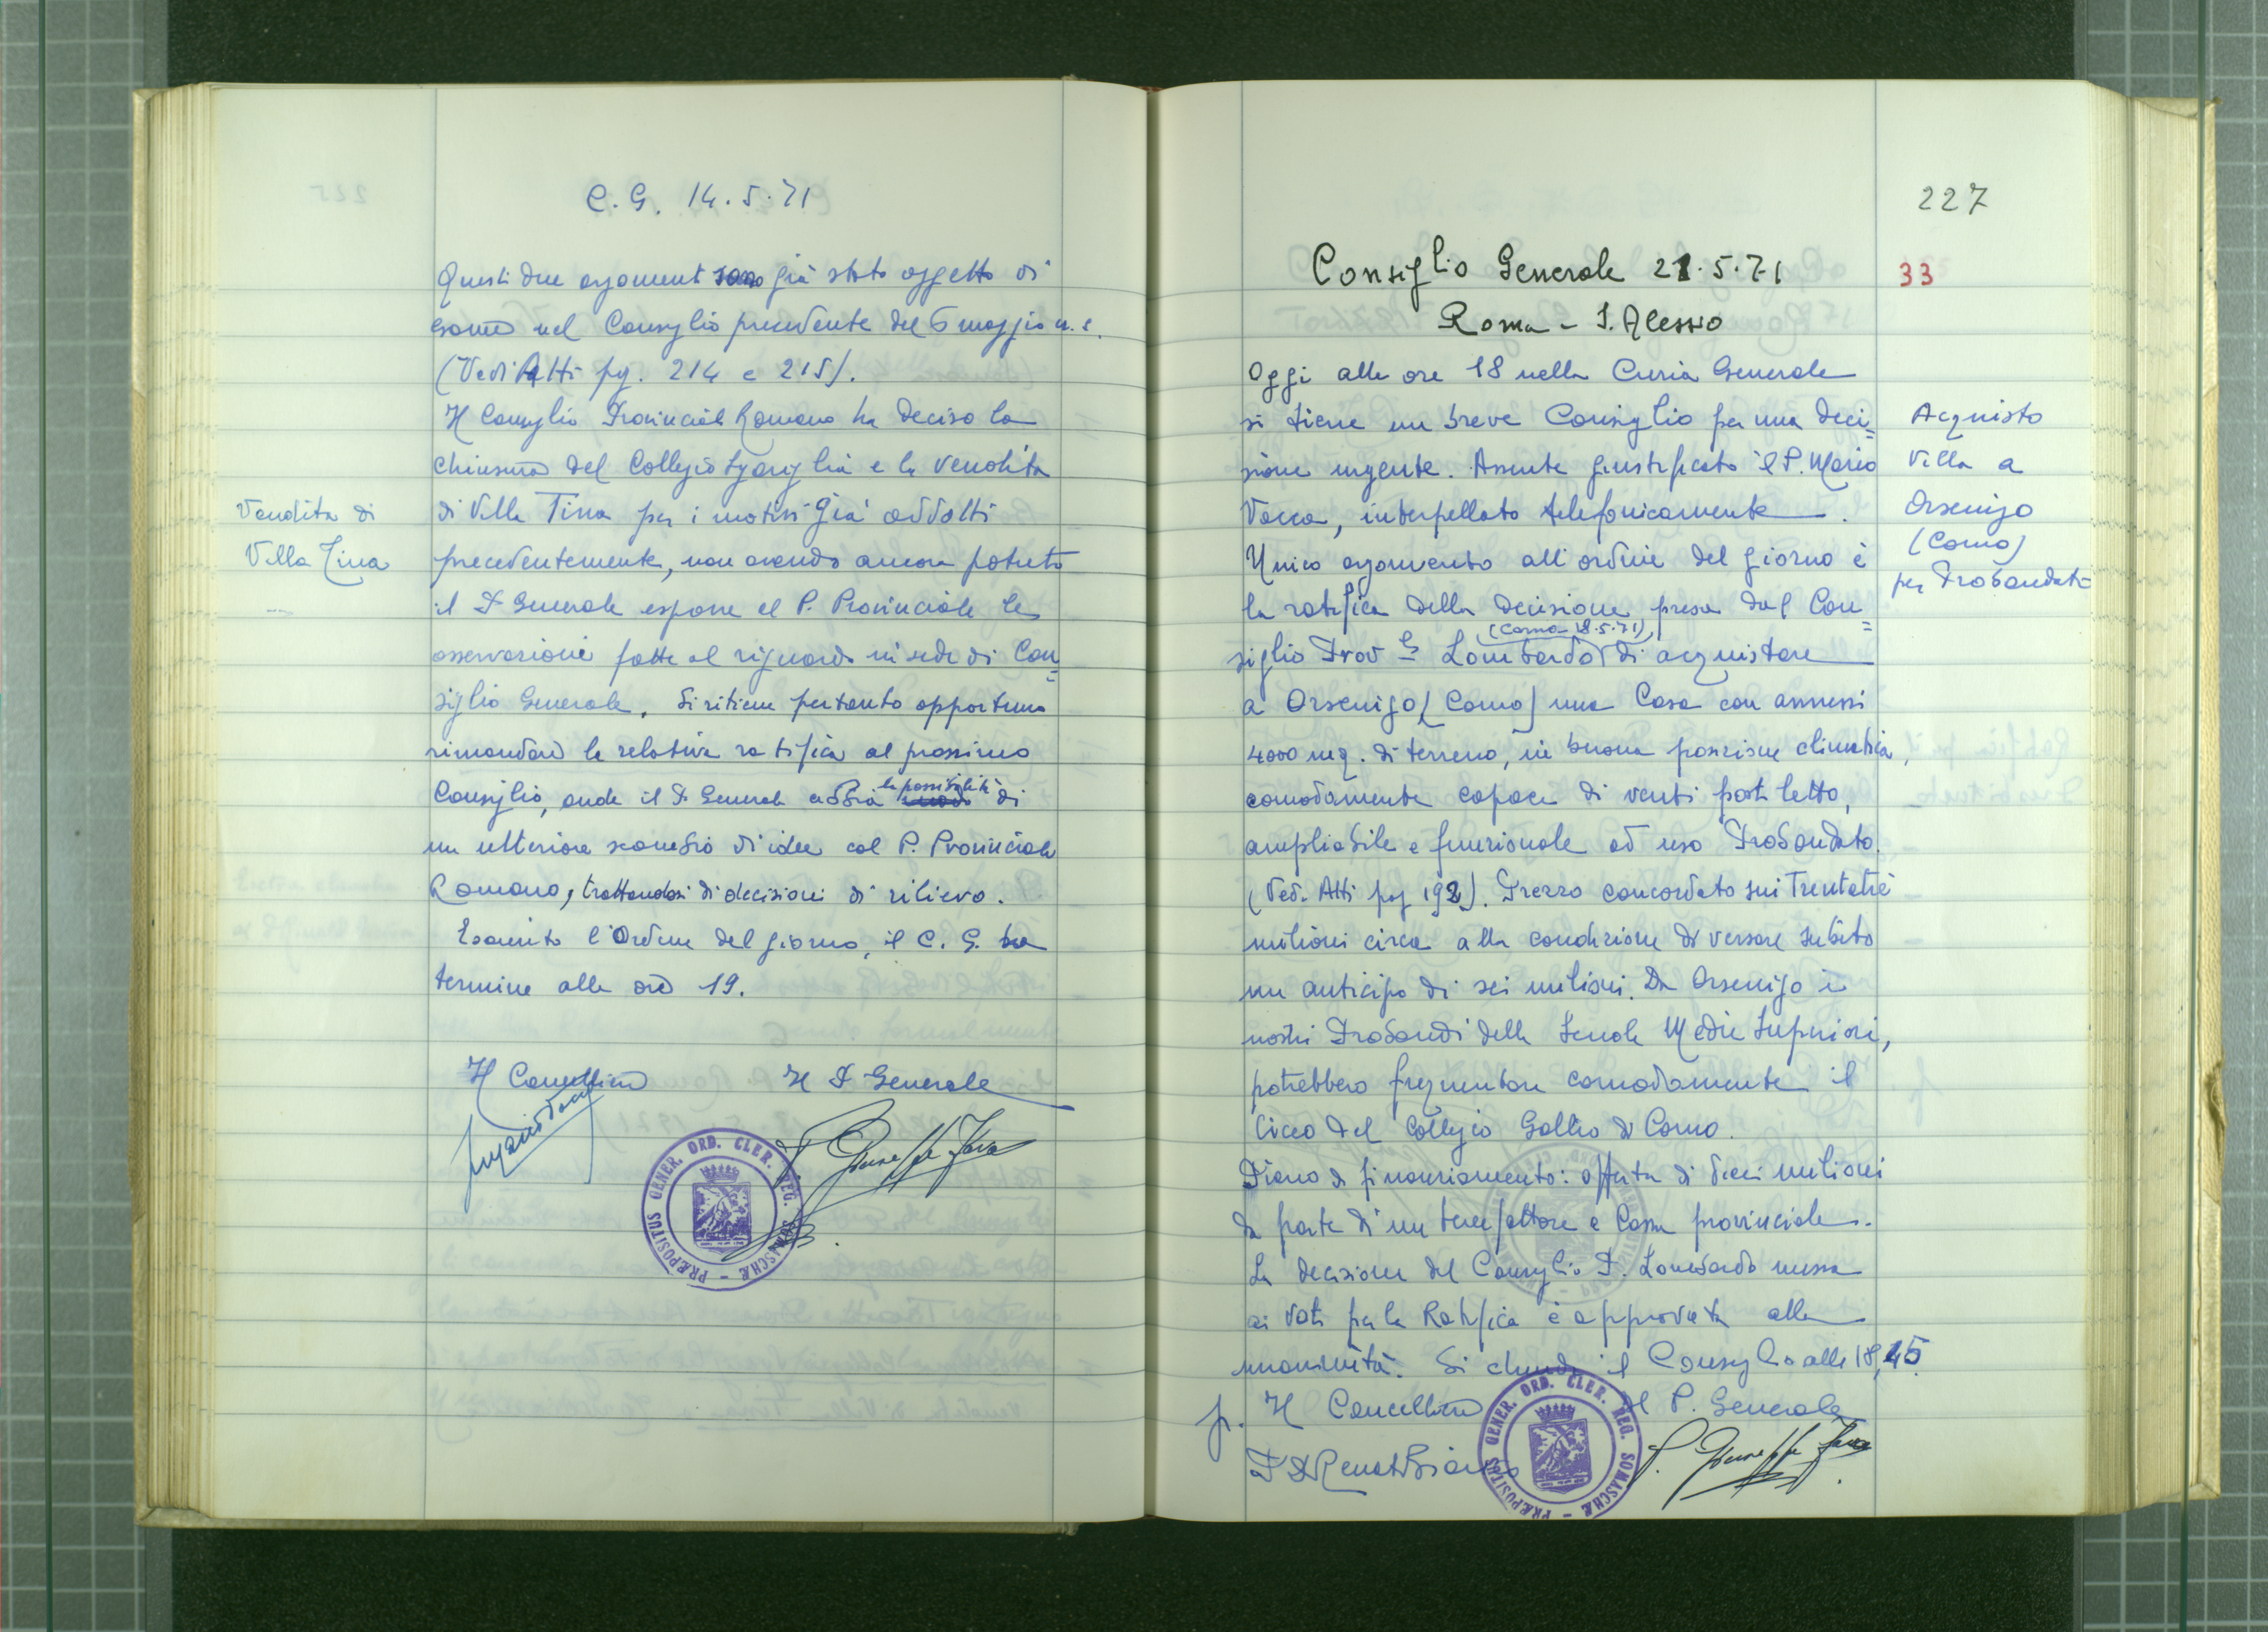 C. G. 14.5.71
Questi due argomenti sono già stato oggetto di
esame nel Consiglio precedente del 6 maggio u. s.
(Vedi Atti pg. 214 e 215).
Il Consiglio Provinciale Romano ha deciso la
chiusura del Collegio e la vendita
Vendita di
Villa Tina
di Villa Tina per i motivi già addotti
precedentemente, non avendo ancora potuto
il P. Generale esporre al P. Provinciale le
osservazioni fatte al riguardo in sede di Con=
siglio Generale. Si ritiene pertanto opportuno
rimandare la relativa ratifica al prossimo
Consiglio, onde il P. Generale abbia la possibilità di
un ulteriore scambio di idee col P. Provinciale
Romano, trattandosi di decisioni di rilievo.
Esaurito l'Ordine del giorno, il C. G. ha
termine alle ore 19.
Il Cancelliere Il P. Generale
P. Giuseppe Fava
PRÆPOSITUS GENER. ORD. CLER. REG. SOMASCHÆ
227
33
Consiglio Generale 21.5.71
Roma - S. Alessio
Oggi alle ore 18 nella Curia Generale
si tiene un breve Consiglio per una deci=
sione urgente. Assente giustificato il P. Mario
Vacca, interpellato telefonicamente.
Acquisto
Villa a
Orsenigo
(Como)
per Probandato
Unico argomento all'ordine del giorno è
la ratifica della decisione presa dal Con=
siglio Prov.le Lombardo (Como 18.5.71), di acquistare
a Orsenigo (Como) una Casa con annessi
4000 mq. di terreno, in buona posizione climatica,
comodamente capace di venti posti letto,
ampliabile e funzionale ad uso Probandato.
(Ved. Atti pag 192). Prezzo concordato sui Trentatrè
milioni circa alla condizione di versare subito
un anticipo di sei milioni. Da Orsenigo i
nostri Probandi della Scuola Medie Superiori,
potrebbero frequentare comodamente il
Liceo del Collegio Gallio di Como.
Piano di finanziamento: offerta di dieci milioni
da parte di un benefattore e Cassa provinciale.
La decisione del Consiglio P. Lombardo messa
ai voti per la Ratifica è approvata alla
unanimità. Si chiude il Consiglio alle 18,45.
p. Il Cancelliere Il P. Generale
P. D. Renato Bianco P. Giuseppe Fava
PRÆPOSITUS GENER. ORD. CLER. REG. SOMASCHÆ